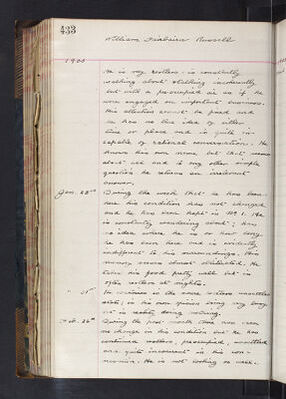 433
William Fairbairn Russell
1900
He is very restless - is constantly
walking about talking incoherently
but with a preoccupied air as if he
were engaged on important business.
His attention cannot be fixed and
he has no idea of either
time or place and is quite in-
capable of rational conversation. He
knows his own name, but that seems
about all and to any other simple
question he returns an irrelevant
answer.
Jan. 28th During the week that he has been
here his condition has not changed
and he has been kept in No 1. He
is constantly wandering about; has
no idea where he is or how long
he has been here and is evidently
indifferent to his surroundings. His
memory seems almost obliterated. He
takes his food pretty well but is
often restless at nights.
" is the same restless unsettled
state; is in his own opinion very busy
but is really doing nothing.
Feb. 26th During the past month there has been
no change in his condition but he has
continued restless, preoccupied, unsettled
and quite incoherent in his con-
versation. He is not looking so well.